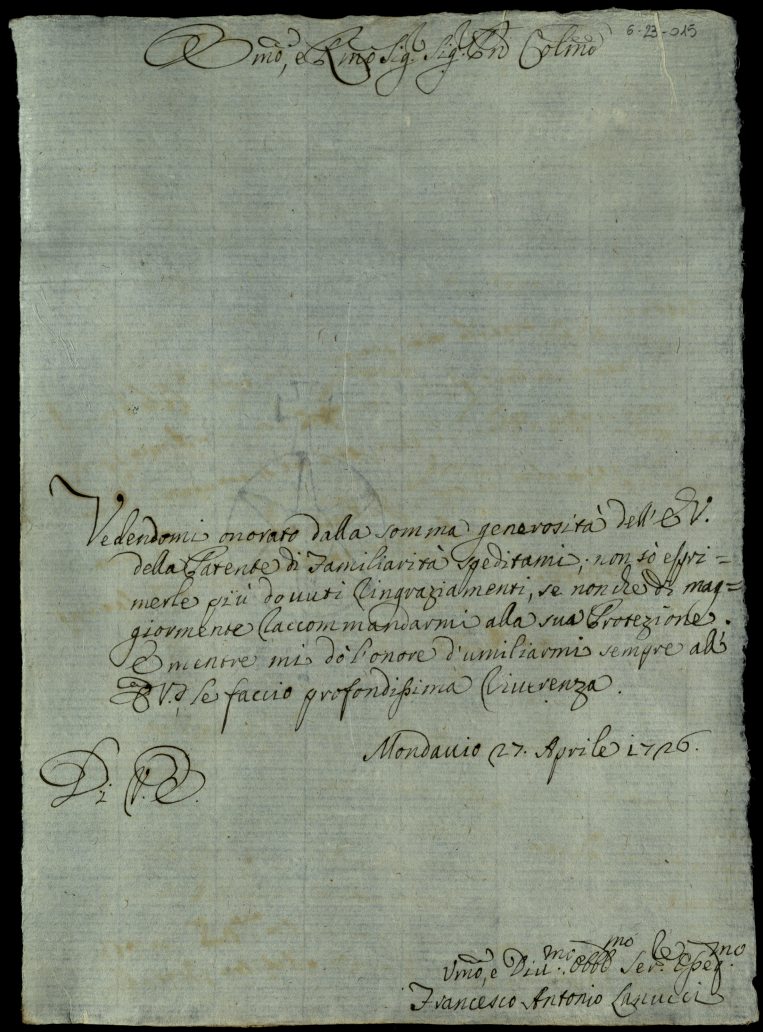 6-23-015
Emo, e Rmo Sig. Sig. Prõ Colmo
Vedendomi onorato dalla somma generosità dell' E V.
della Patente di Familiarità speditami, non sò espri=
merle più douuti Ringraziamenti, se non che di mag=
giormente Raccommandarmi alla sua Protezione.
E mentre mi dò l'onore d'umiliarmi sempre all'
E V. le faccio profondissima Riuerenza.
Mondauio 27. Aprile 1726.
Di V. E.
Vmõ, e Diu.mo Obb.mo Ser.
Francesco Antonio